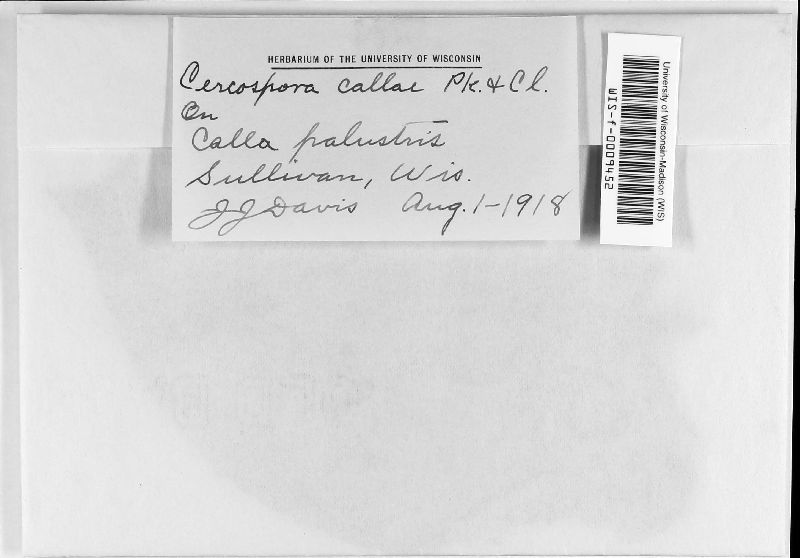 HERBARIUM OF THE UNIVERSITY OF WISCONSIN
Cercospora callae Pk. & Cl.
On
Calla palustris
Sullivan, Wis.
JJ Davis Aug. 1-1918
University of Wisconsin-Madison (WIS)
WIS-f-0009452